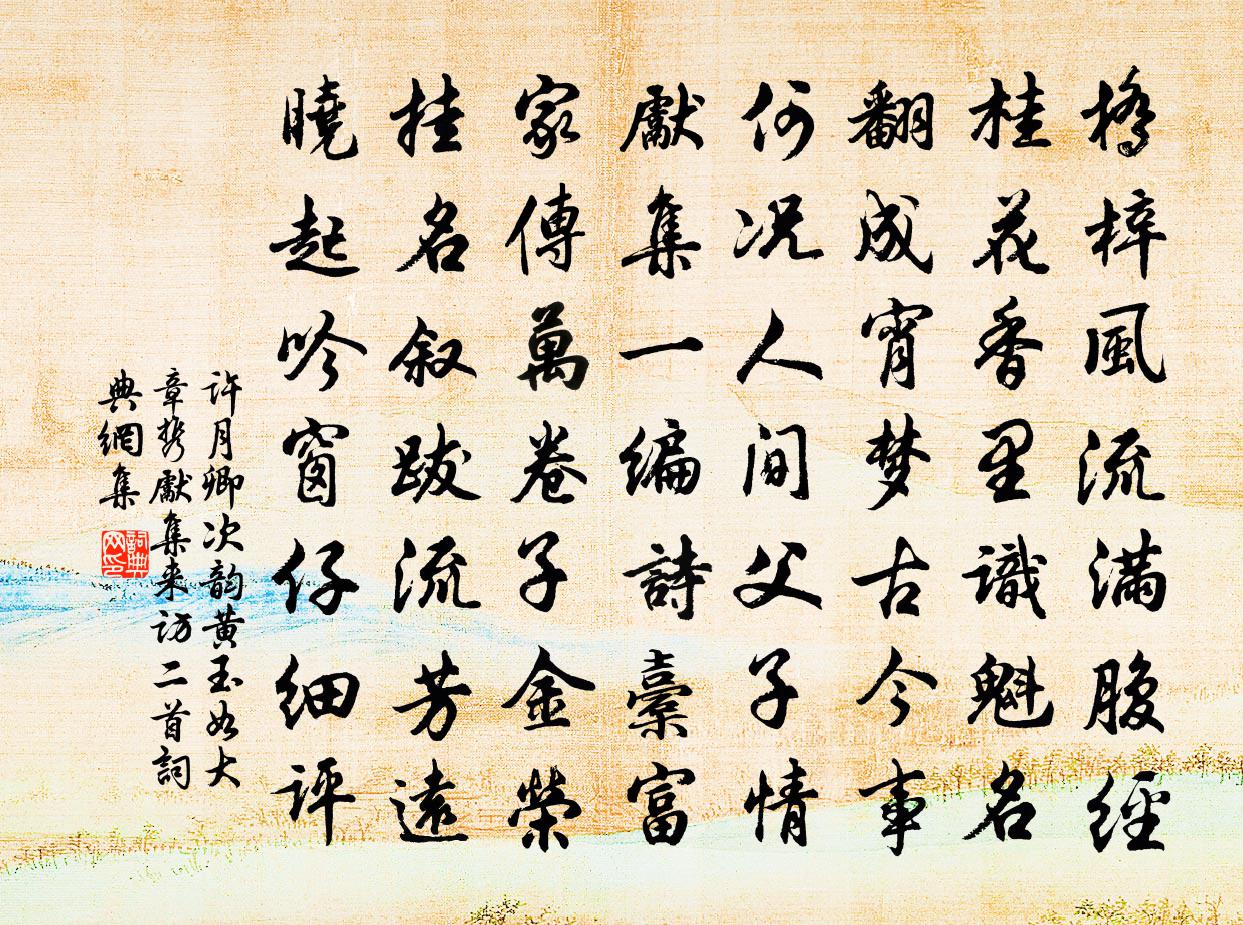 橋梓風流满腹經
桂花香里識魁名
翻成宵梦古今事
何况人间父子情
獻集一编詩橐富
家傳萬卷子金榮
挂名叙跋流芳遠
曉起吟窗仔細評
許月卿次韵黄玉如大
章携獻集来访二首詞
典網集
詞典网印